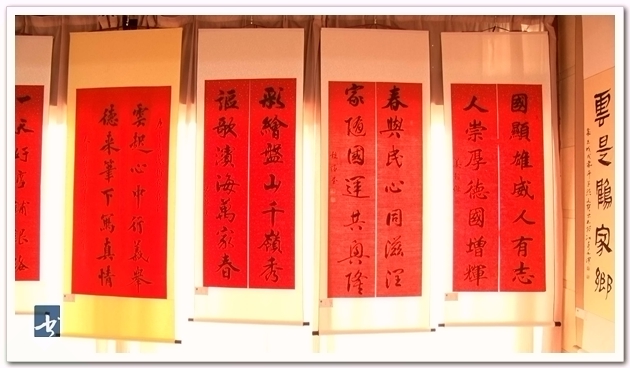 雲是鶴家鄉
國顯雄威人有志
人崇厚德國增輝
春與民心同滋潤
家隨國運共興隆
彩繪盤山千嶺秀
謳歌濱海萬家春
心中行義舉
德來筆下寫真情
一天行